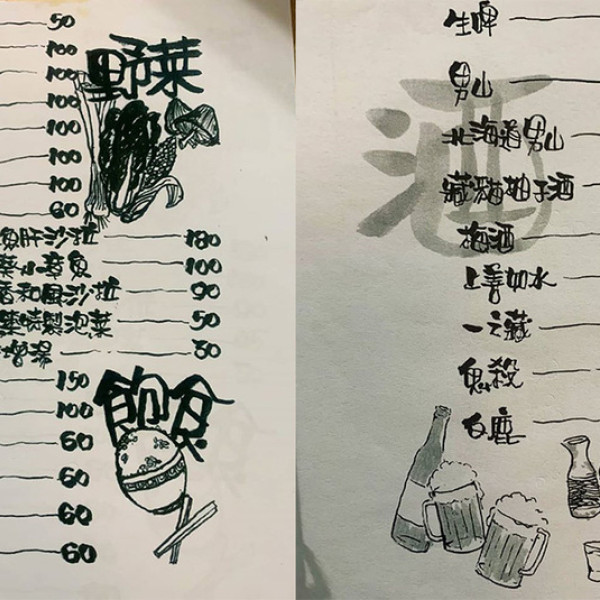 50
100
100
野菜
100
100
100
100
60
魚肝沙拉 180
章魚 100
香和風沙拉 90
特製泡菜 50
噌湯 30
150
飲食
100
60
60
60
60
生啤
酒
男山
北海道男山
藏貓柚子酒
梅酒
上善如水
一之藏
鬼殺
白鹿